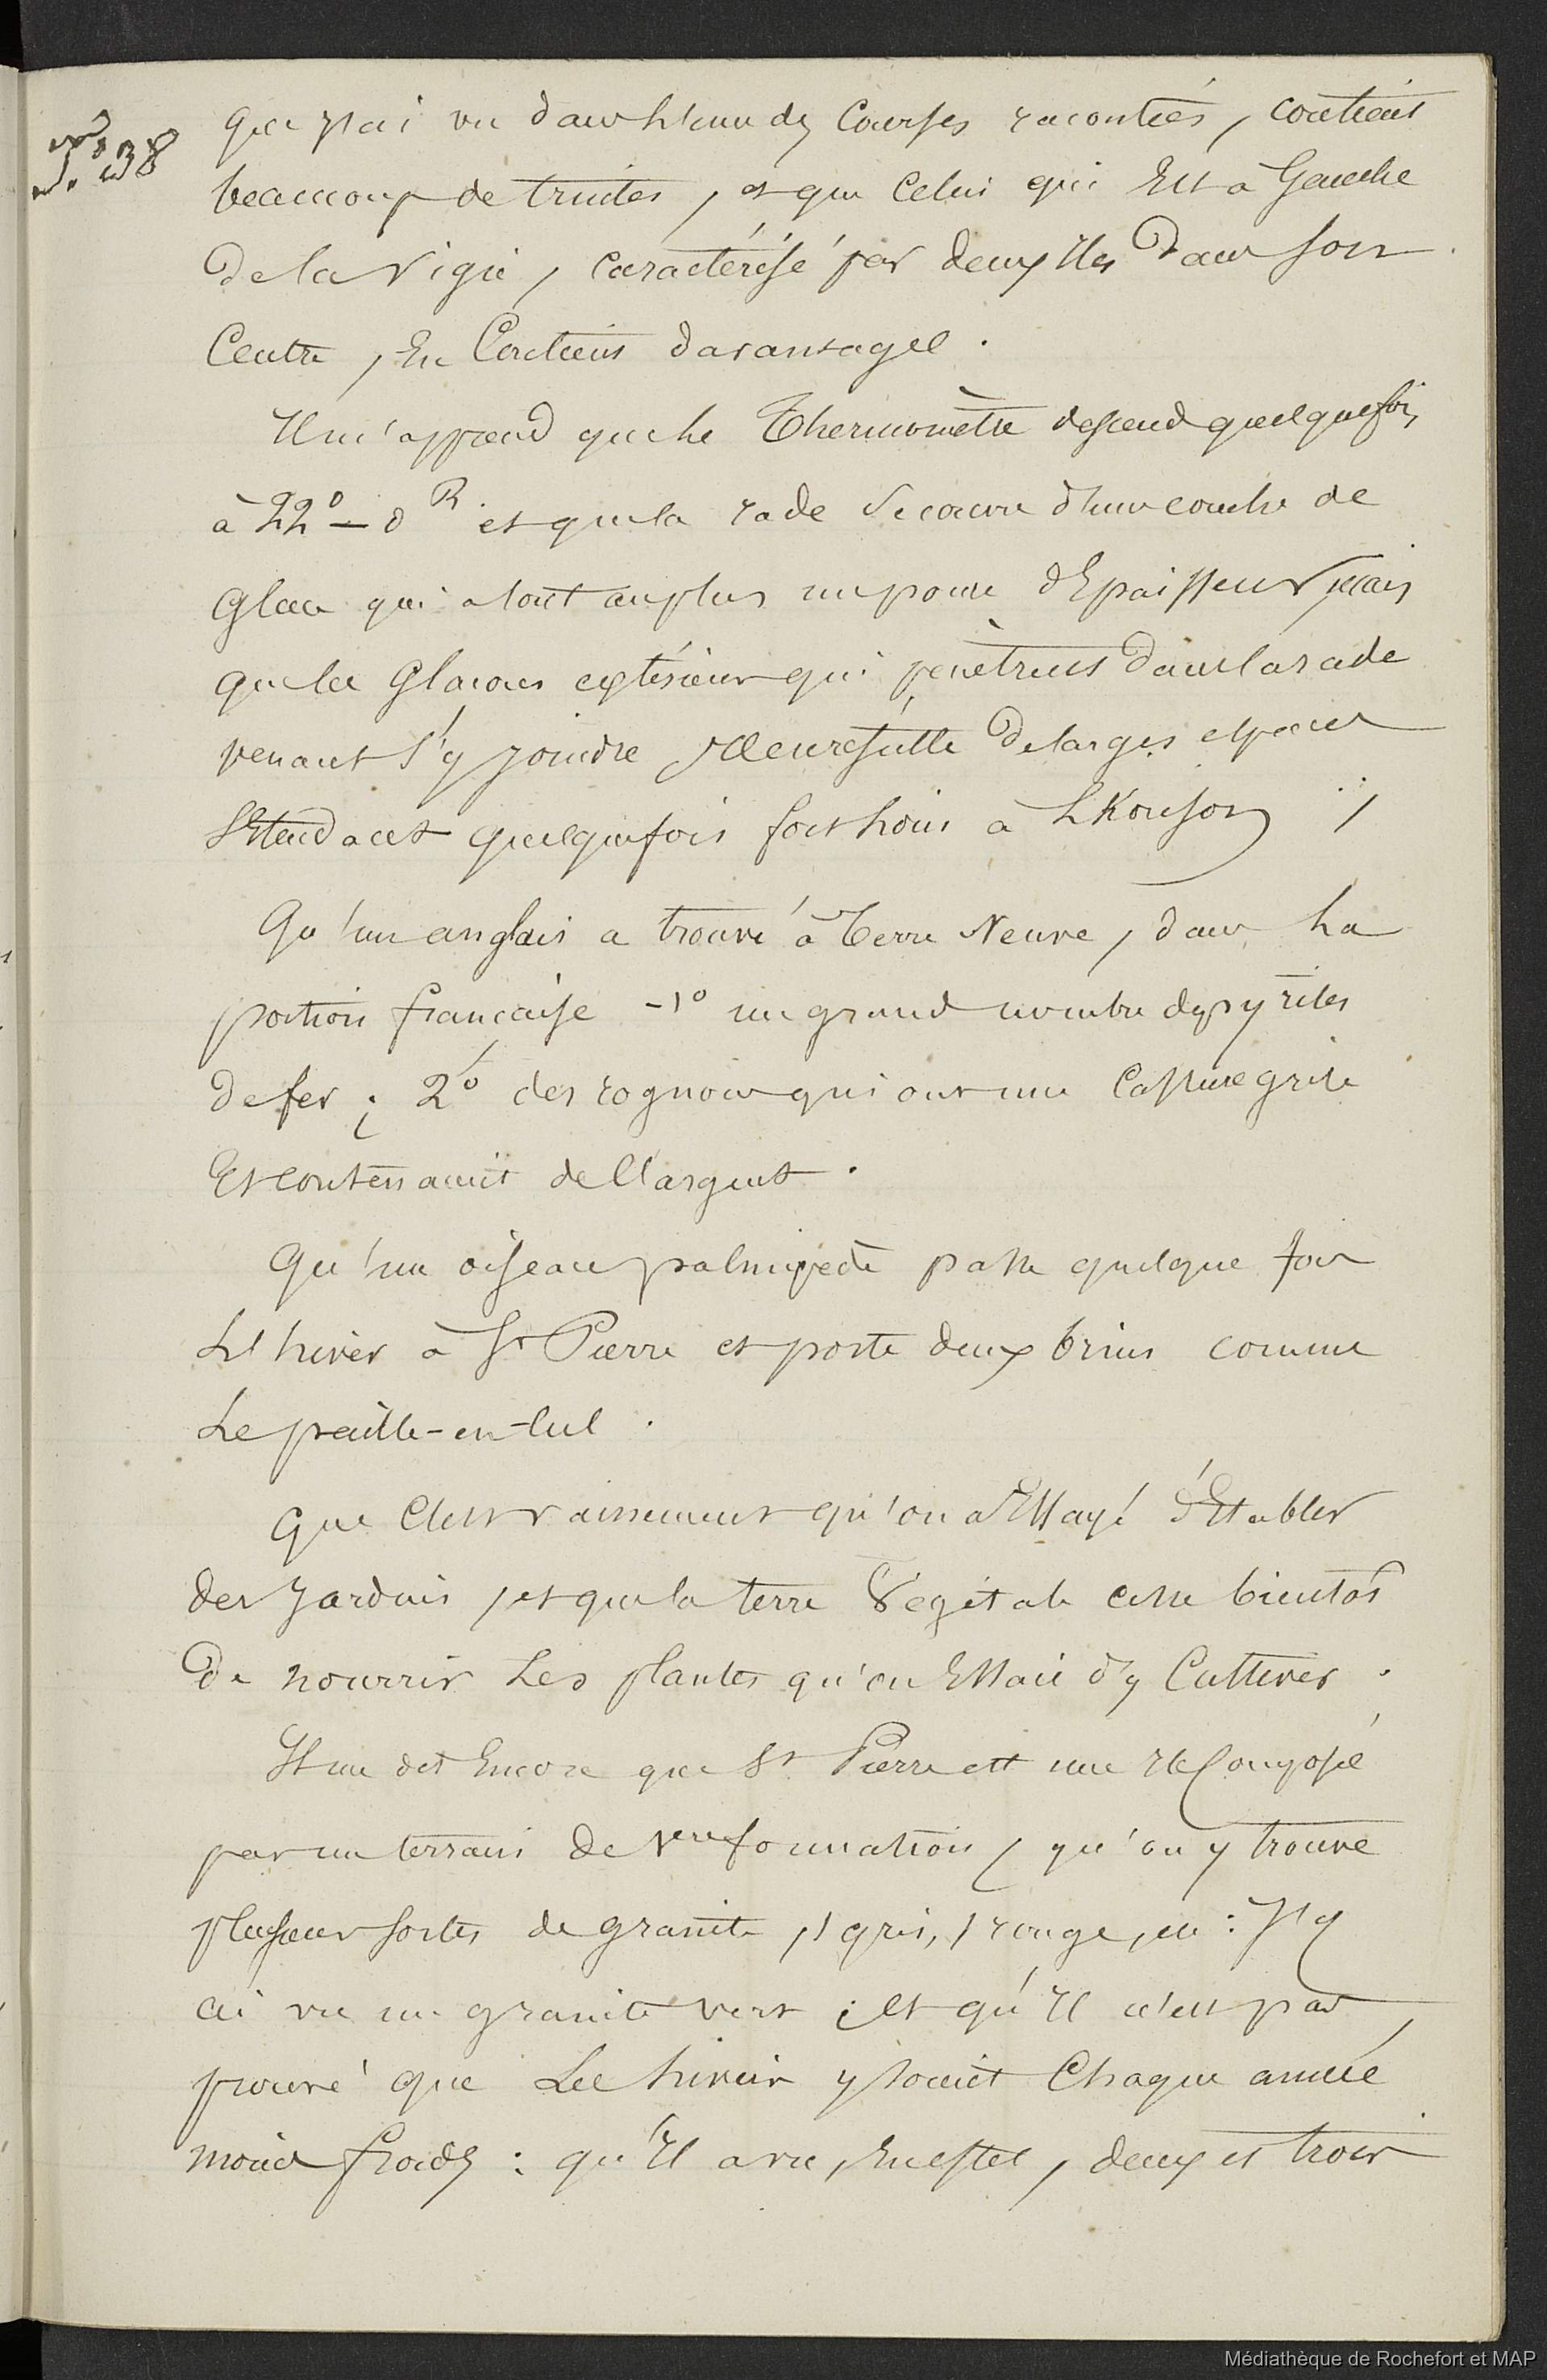 que j'ai vu dans l'une des Courses racontées, contient
N° 38
beaucoup de truites, et que Celui qui Est à Gauche
De la Vigie, caractérisé par deux Iles Dans son
Centre, En Contient davantage.
Il m'apprend que le Thermomètre descend quelquefois
à 22° – 0 R. et que la rade se couvre d'une couche de
Glace qui a tout au plus un pouce d'Epaisseur, mais
que les Glaces extérieures qui pénètrent dans la rade
venant s'y joindre Il en résulte De larges espaces
S'Etendant quelquefois fort loin à L'horison ;
Qu'un anglais a trouvé à Terre Neuve, dans la
portion française – 1° un grand nombre de pyrites
de fer ; 2° des rognons qui ont une Cassure grise
Et contenant de l'argent.
Qu'un oiseau palmipède passe quelque fois
L'hiver à St Pierre et porte deux brins comme
Le paille-en-cul.
Que C'est vainement qu'on a Essayé d'Etablir
des Jardins, et que la terre Végétale cesse bientôt
De nourrir Les plantes qu'on Essaie d'y Cultiver.
Il me dit Encore que St Pierre est une Ile Composée
par un terrain de 1ere formation, qu'on y trouve
plusieurs sortes de granite, 1 gris, 1 rouge, : J'y
ai vu un granite vert ; Et qu'Il n'est pas
prouvé que Les hivers y soient Chaque année
moins froids : qu'Il a vu, En effet, deux et trois
Médiathèque de Rochefort et MAP